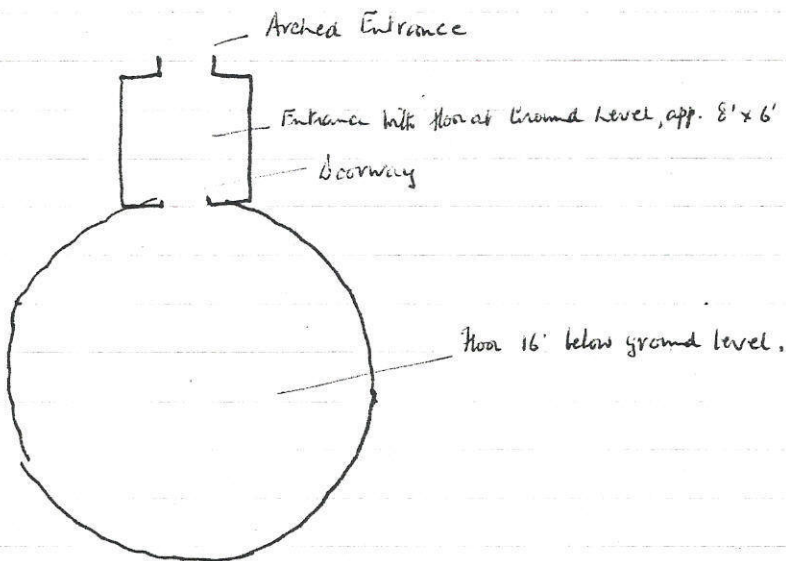 Arched Entrance
Entrance with floor at Ground Level, app. 8' x 6'
Doorway
Floor 16' below ground level.